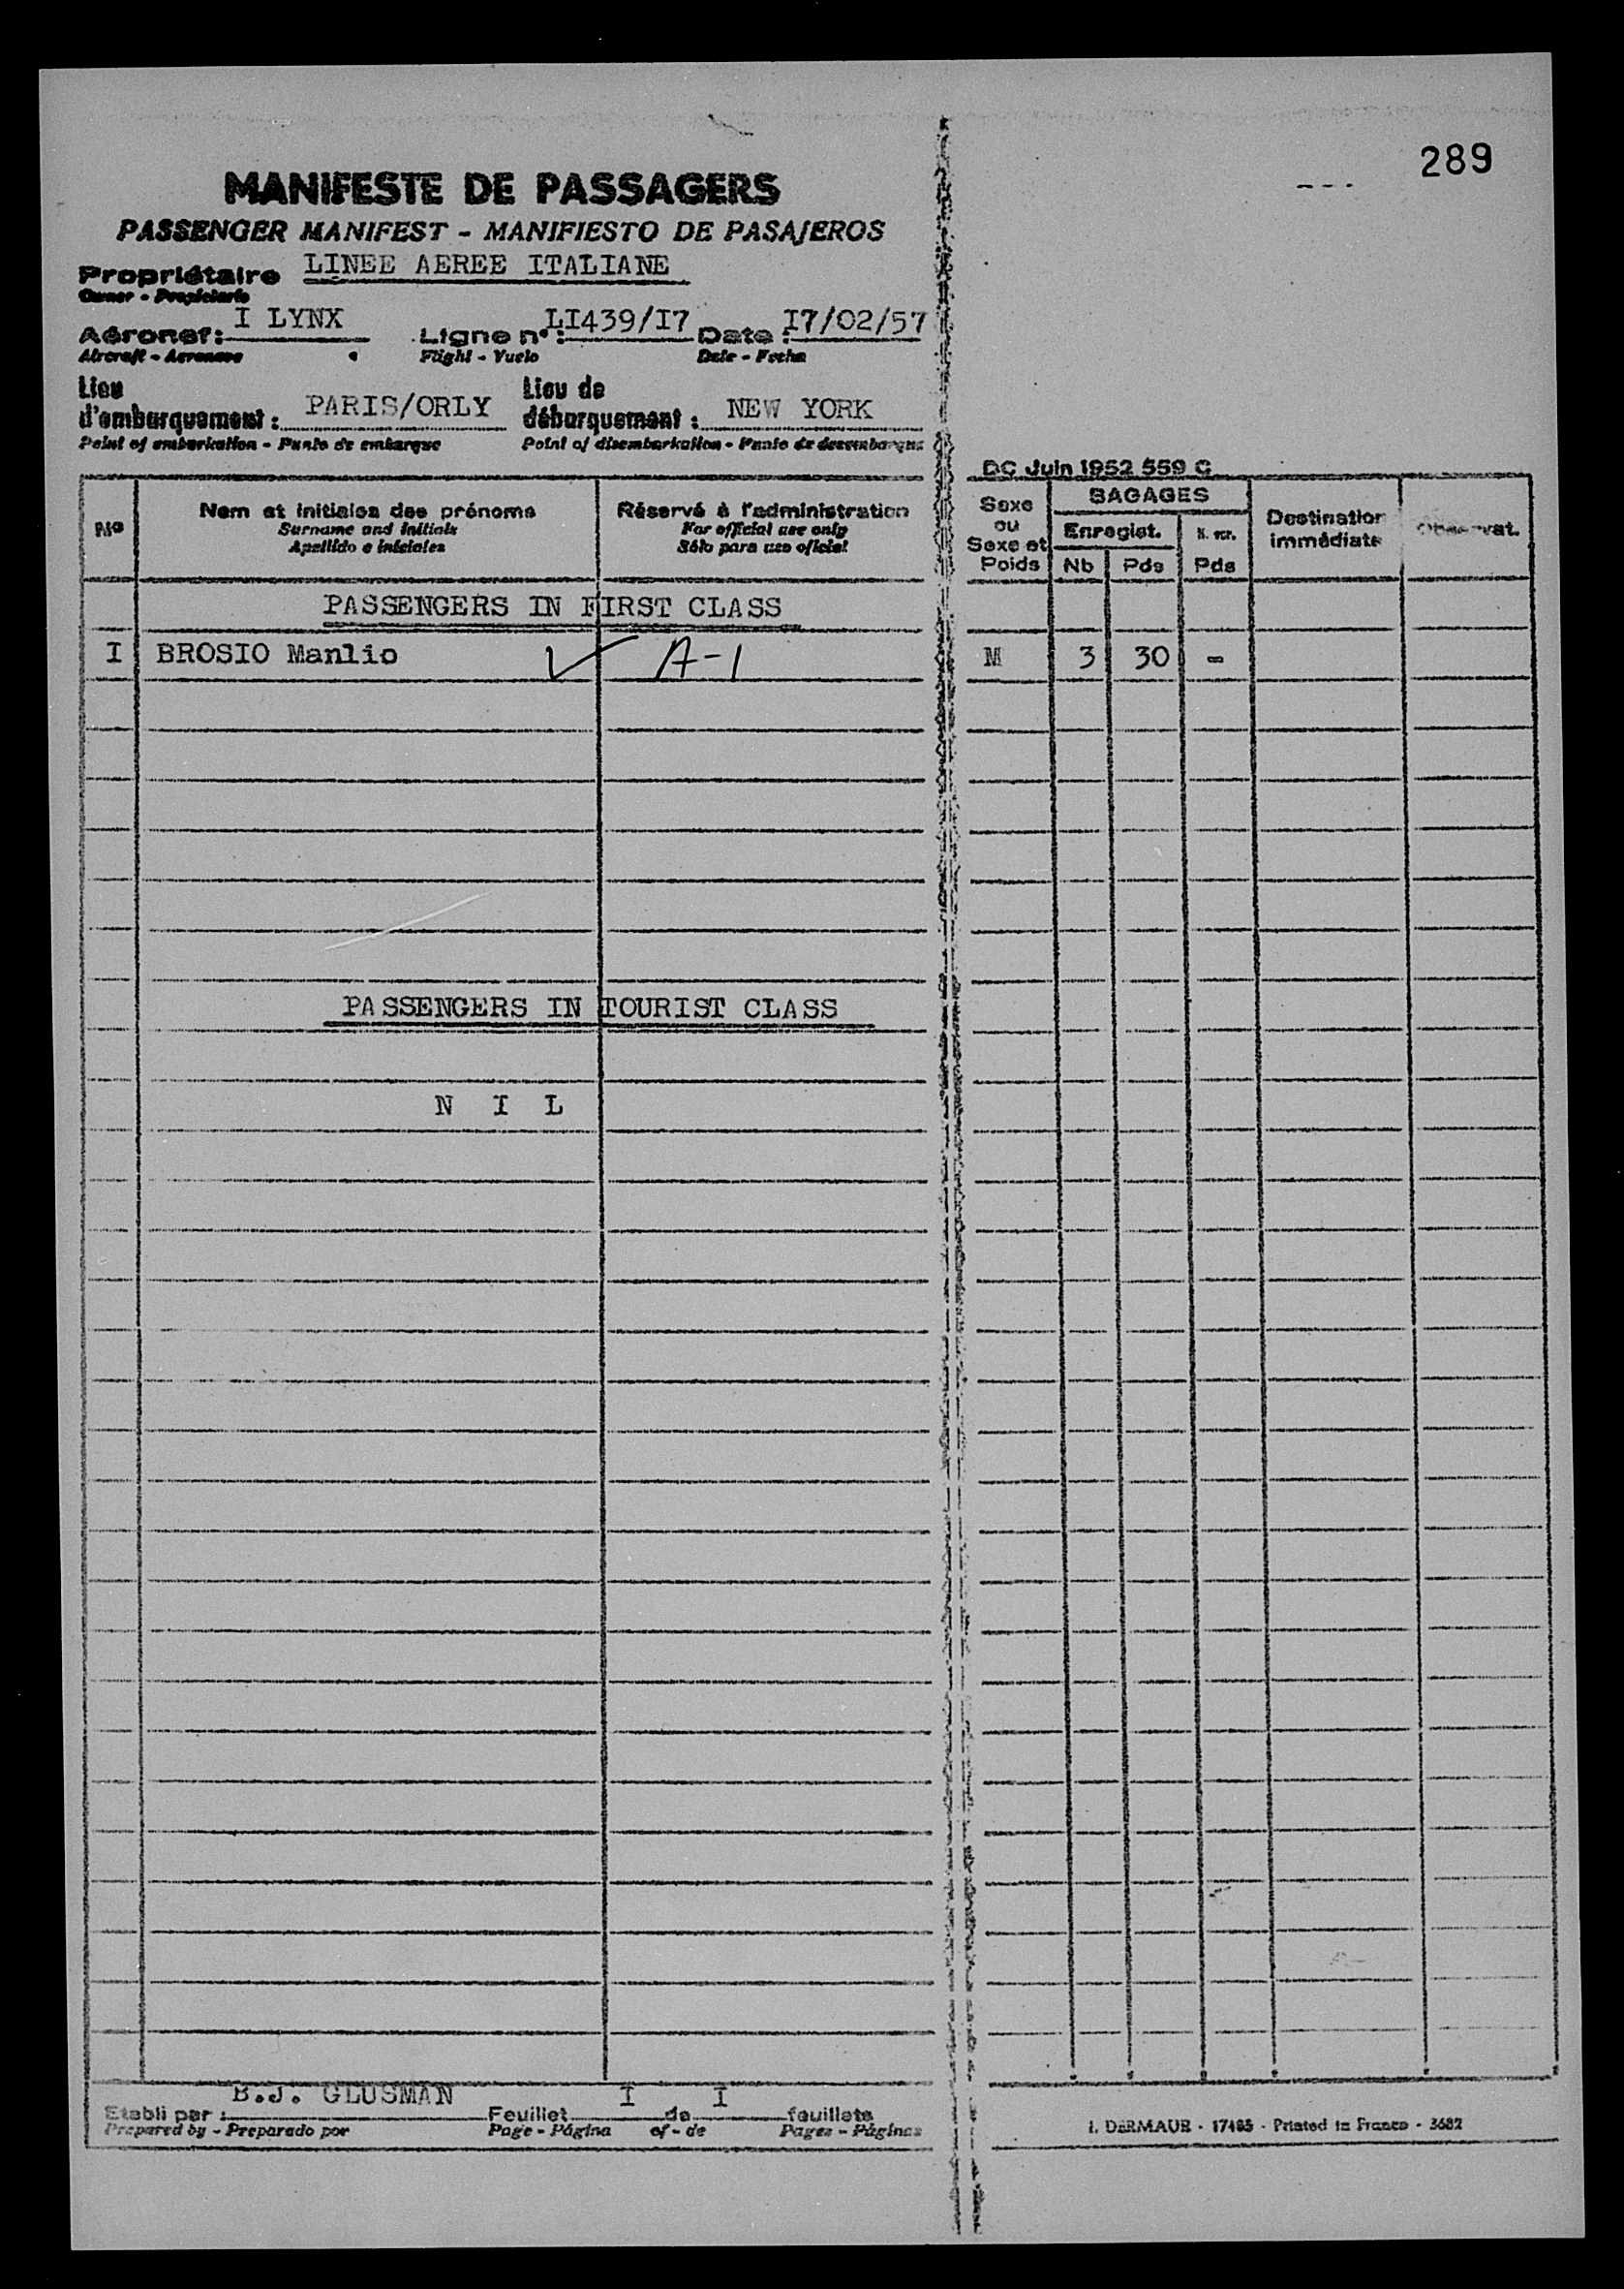 289
MANIFESTE DE PASSAGERS
PASSENGER MANIFEST - MANIFIESTO DE PASAJEROS
Propriétaire LINEE AEREE ITALIANE
Owner - Propietario
Aéronef: I LYNX Ligne n° : LI439/I7 Date : I7/02/57
Aircraft - Aeronave Flight - Vuelo Date - Fecha
Lieu Lieu de
d'embarquement : PARIS/ORLY débarquement : NEW YORK
Point of embarkation - Punto de embarque Point of disembarkation - Punto de desembarque
DC Juin 1952 559 C
No Nom et initiales des prénoms Réservé à l'administration Sexe BAGAGES Destination Observat.
Surname and initials For official use only ou Enregist. immédiate
Apellido e iniciales Sólo para uso oficial Sexe et
Poids Nb Pds Pds
PASSENGERS IN FIRST CLASS
I BROSIO Manlio A-1 M 3 30 -
PASSENGERS IN TOURIST CLASS
N I L
B.J. GLUSMAN I I
Etabli par : Feuillet de feuillets
Prepared by - Preparado por Page - Página of - de Pages - Páginas
I. DERMAUR - 17485 - Printed in France - 3682